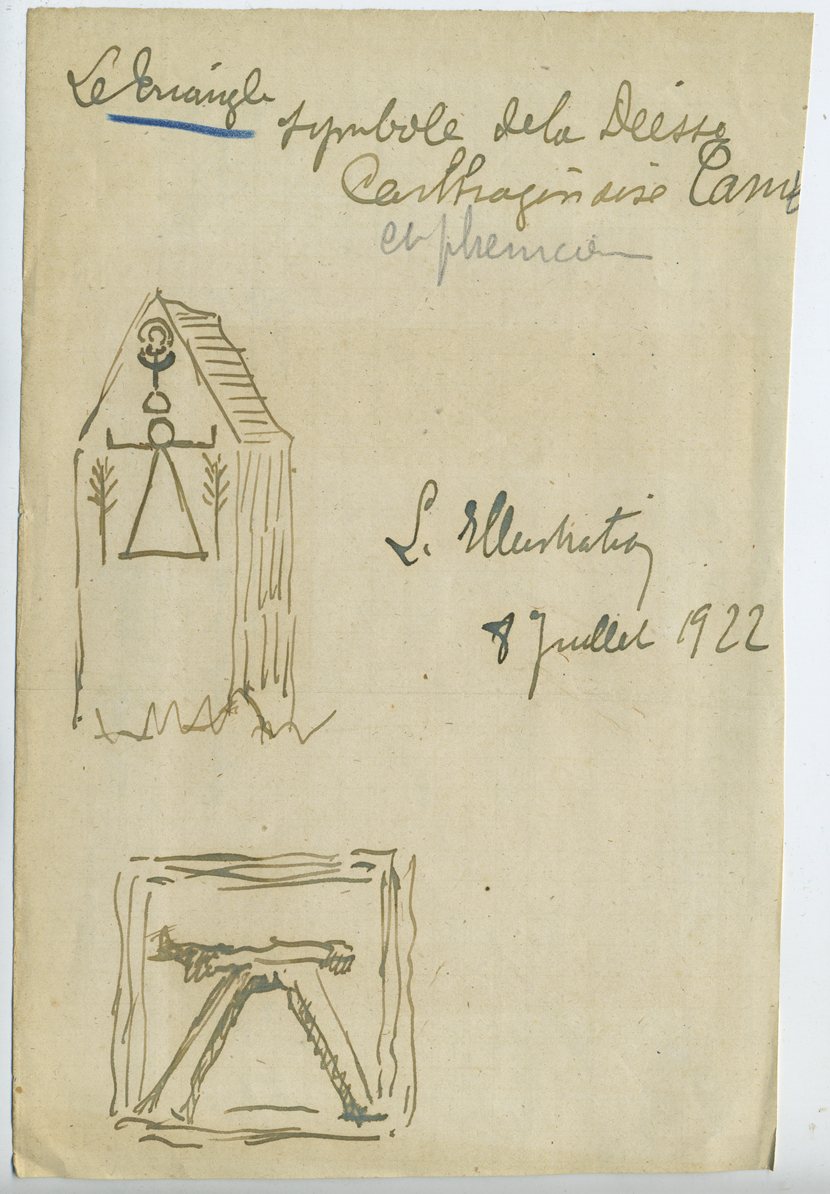 Le triangle
symbole de la Déesse
Carthaginoise Tanit
et phenicien
L. Illustration
8 Juillet 1922